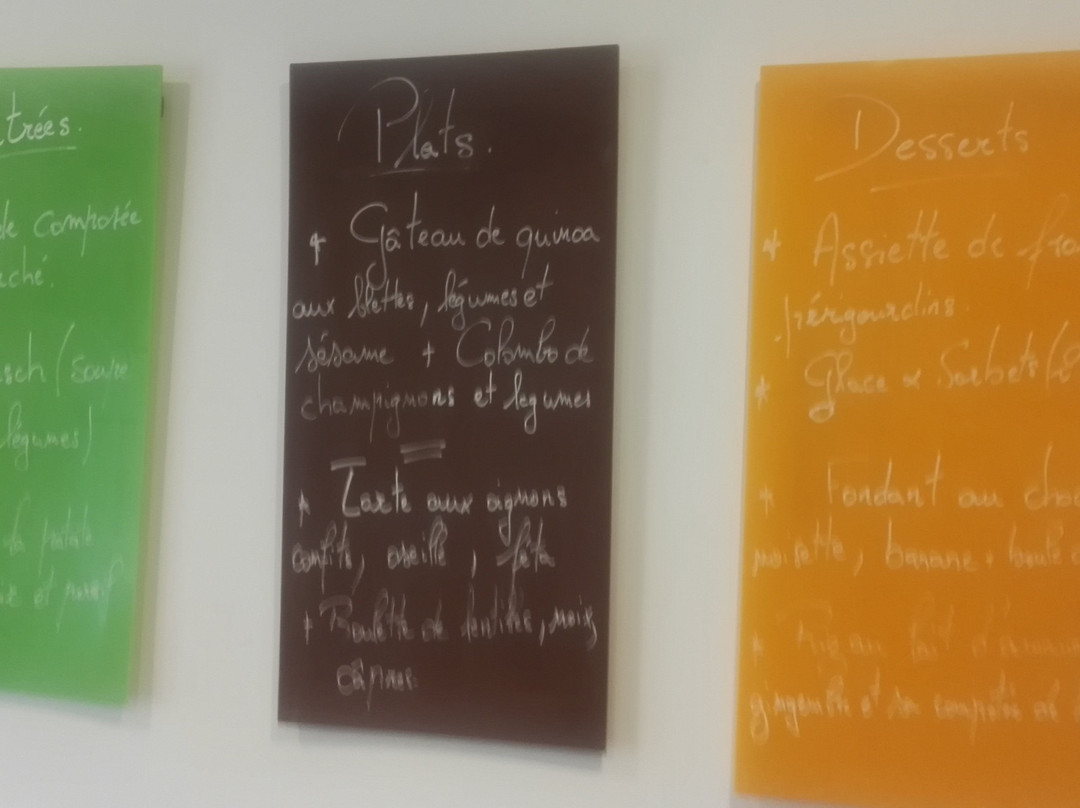 trées.
de composée
ché.
sch (soupe
légumes)
patate
et
Plats.
+ Gâteau de quinoa
aux blettes, légumes et
sésame + Colombo de
champignons et legumes
* Tarte aux oignons
confits, oseille, féta
* Boulette de lentilles, noix,
câpres.
Desserts
* Assiette de fro
périgourdins.
* Glace & Sorbets (
* Fondant au cho
noisette, banane + boule
* Riz au lait d'aman
gingembre et sa compotée de